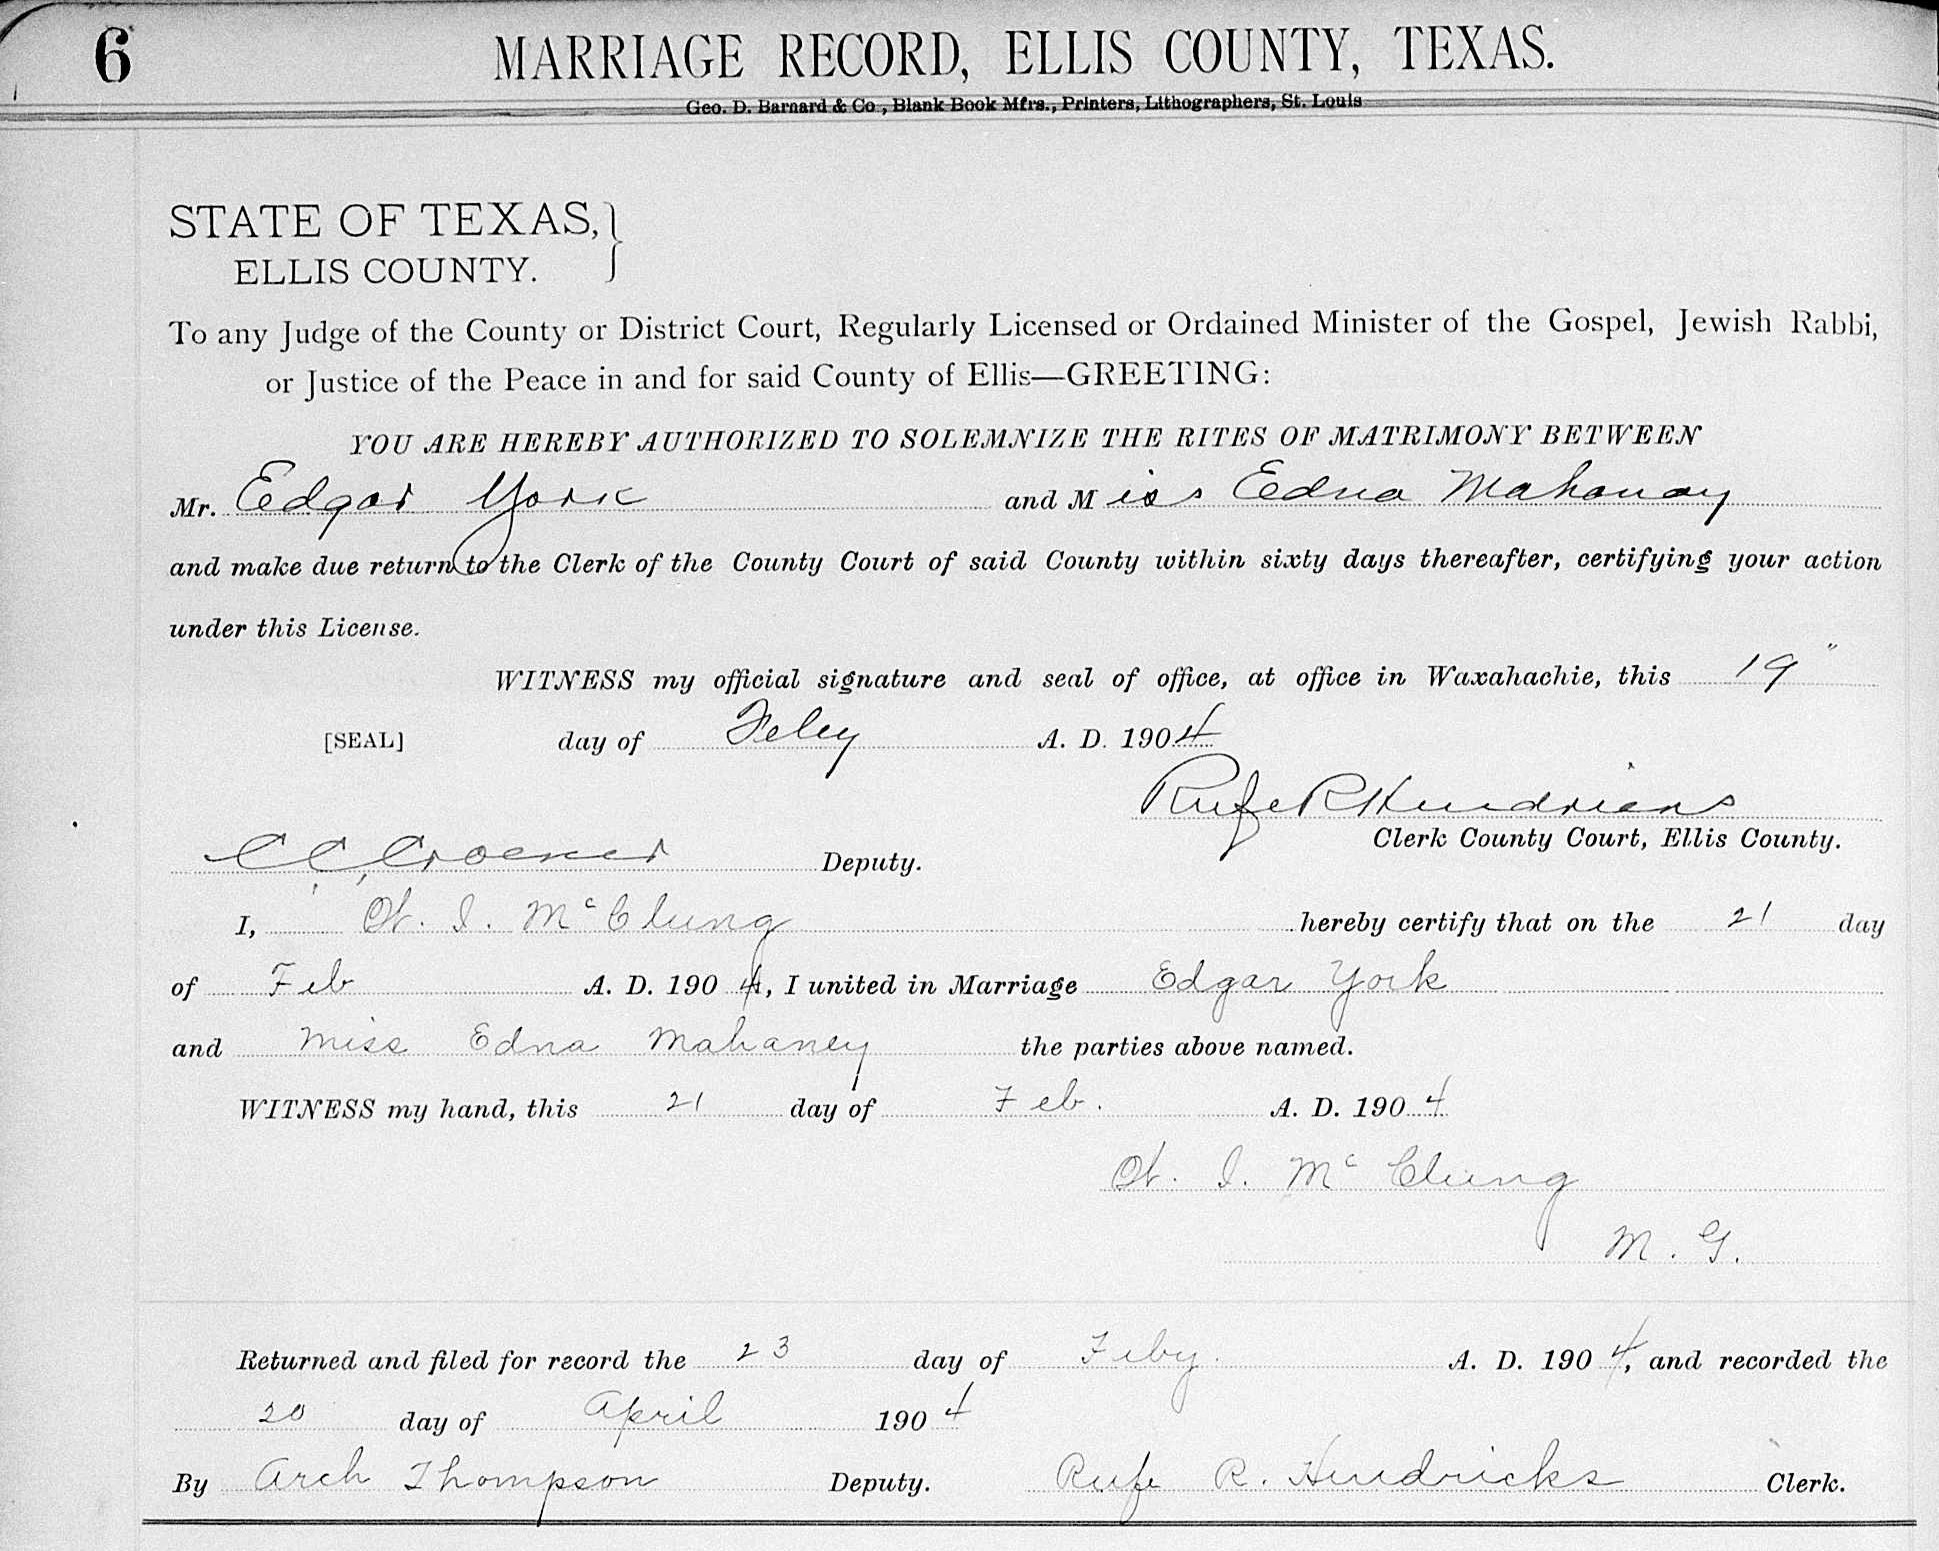 6
MARRIAGE RECORD, ELLIS COUNTY, TEXAS.
Geo. D. Barnard & Co., Blank Book Mfrs., Printers, Lithographers, St. Louis
STATE OF TEXAS,
ELLIS COUNTY.
To any Judge of the County or District Court, Regularly Licensed or Ordained Minister of the Gospel, Jewish Rabbi,
or Justice of the Peace in and for said County of Ellis—GREETING:
YOU ARE HEREBY AUTHORIZED TO SOLEMNIZE THE RITES OF MATRIMONY BETWEEN
Mr. Edgar York and Miss Edna Mahanay
and make due return to the Clerk of the County Court of said County within sixty days thereafter, certifying your action
under this License.
WITNESS my official signature and seal of office, at office in Waxahachie, this 19"
[SEAL] day of Feby A. D. 1904
Rufe R Hendricks
Clerk County Court, Ellis County.
C C Deputy.
I, W. I. McClung hereby certify that on the 21 day
of Feb A. D. 1904, I united in Marriage Edgar York
and Miss Edna Mahaney the parties above named.
WITNESS my hand, this 21 day of Feb. A. D. 1904
W. I. McClung
M. G.
Returned and filed for record the 23 day of Feby. A. D. 1904, and recorded the
20 day of April 1904
By Arch Thompson Deputy. Rufe R. Hendricks Clerk.